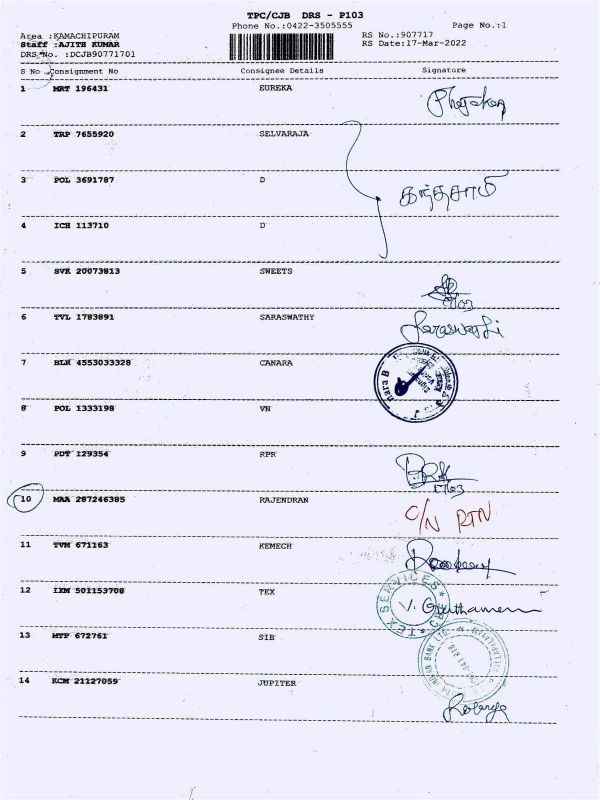 TPC/CJB DRS - P103
Phone No.:0422-3505555 Page No.:1
Area :KAMACHIPURAM RS No.:907717
Staff :AJITH KUMAR RS Date:17-Mar-2022
DRS No. :DCJB90771701
S No Consignment No Consignee Details Signature
1 MRT 196431 EUREKA
2 TRP 7655920 SELVARAJA
3 POL 3691787 D கந்தசாமி
4 ICH 113710 D
5 SVK 20073813 SWEETS
6 TVL 1783891 SARASWATHY Saraswathi
7 BLR 4553033328 CANARA
8 POL 1333198 VN
9 PDT 129354 RPR
10 MAA 287246385 RAJENDRAN C/N RTN
11 TVM 671163 KEMECH
12 IXM 501153708 TEX TEX SERVICES
13 MTP 672761 SIB INDIAN BANK LTD
14 KCM 21127059 JUPITER